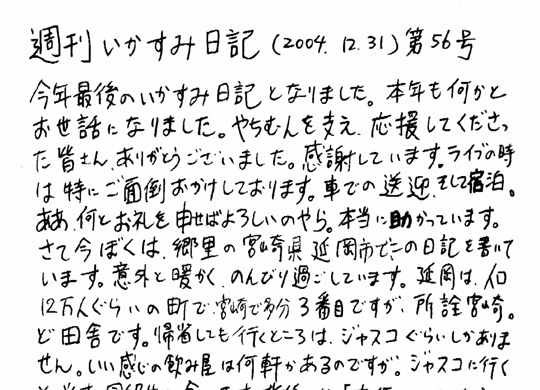 週刊いかすみ日記 (2004. 12. 31) 第56号
今年最後のいかすみ日記となりました。本年も何かと
お世話になりました。やちむんを支え、応援してくださっ
た皆さん、ありがとうございました。感謝しています。ライブの時
は特にご面倒おかけしております。車での送迎、そして宿泊。
ああ、何とお礼を申せばよろしいのやら。本当に助かっています。
さて今ぼくは、郷里の宮崎県延岡市でこの日記を書いて
います。意外と暖かく、のんびり過ごしています。延岡は、人口
12万人ぐらいの町で、宮崎で多分3番目ですが、所詮宮崎。
ど田舎です。帰省しても行くところは、ジャスコぐらいしかありま
せん。いい感じの飲み屋は何軒かあるのですが。ジャスコに行く